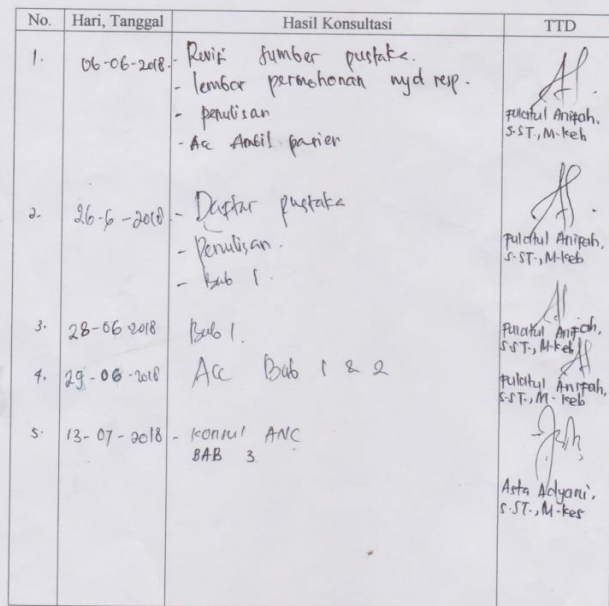 No. Hari, Tanggal Hasil Konsultasi TTD
1. 06-06-2018. - Revisi sumber pustaka.
- lembar permohonan resp.
- penulisan
- Acc Ambil pasien
Fulatul Anifah,
S.ST., M-Keb
2. 26-6-2018 - Daftar pustaka
- Penulisan.
- Bab 1.
Fulatul Anifah,
S.ST., M-Keb
3. 28-06-2018 Bab 1.
Fulatul Anifah,
S.ST., M-Keb
4. 29-06-2018 Acc Bab 1 & 2
Fulatul Anifah,
S.ST., M-Keb
5. 13-07-2018 - Konsul ANC
BAB 3
Asta Adyani,
S.ST., M-Kes